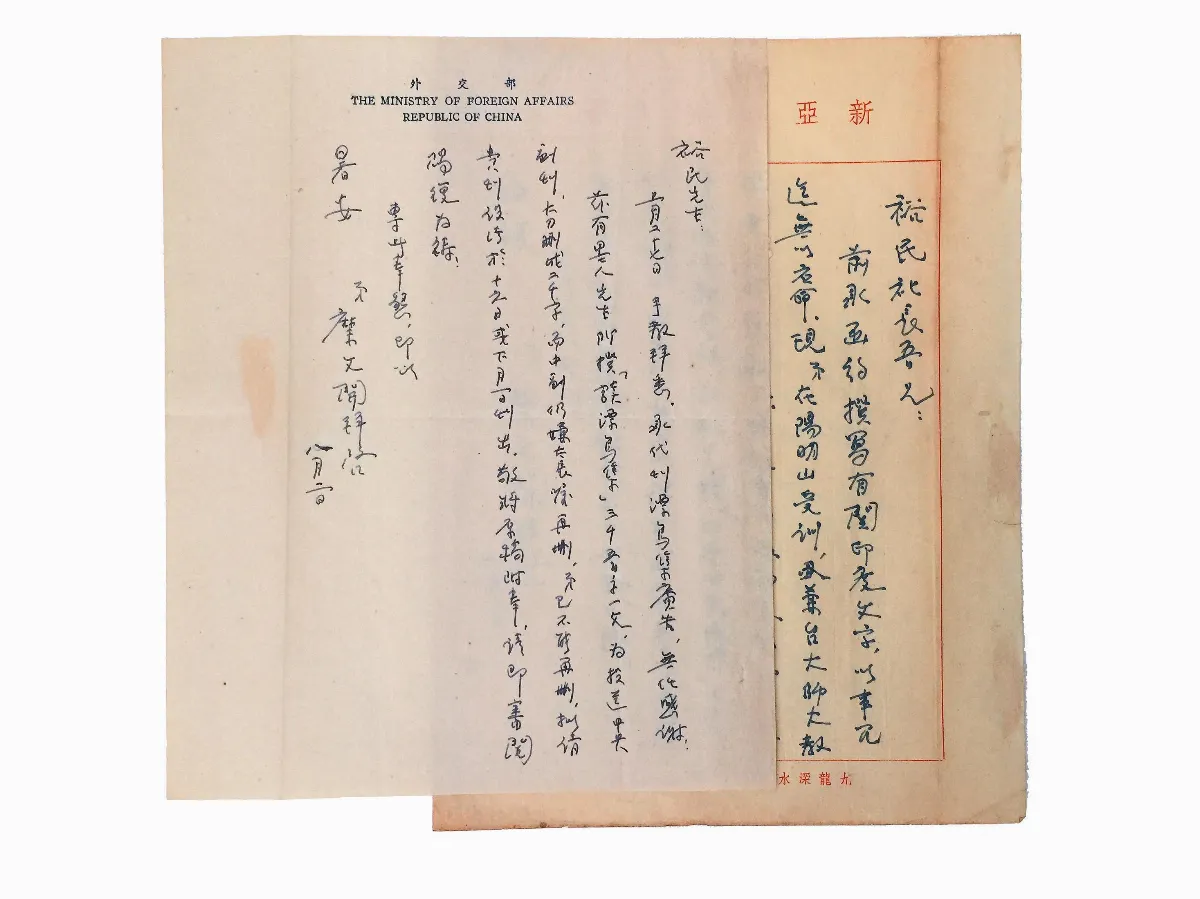 外交部
THE MINISTRY OF FOREIGN AFFAIRS
REPUBLIC OF CHINA
裕民先生:
月廿七日 手教拜悉,承代刊漂鳥集廣告,無任感謝.
茲有墨人先生所撰「談漂鳥集」三千多字一文,為投送中央
副刊,大刀刪成二千字,而中副仍嫌太長囑再刪,弟已不能再刪,擬請
貴刊設法於十六日或下月一日刊出,敬將原稿附奉,請即審閱
賜覆為禱.
專此奉懇,即以
暑安
弟 糜文開拜啓
八月二日
新亞
裕民社長吾兄:
前承函約撰寫有關印度文字,以事冗
迄無以應命,現弟在陽明山受訓,又兼台大師大教
九龍深水